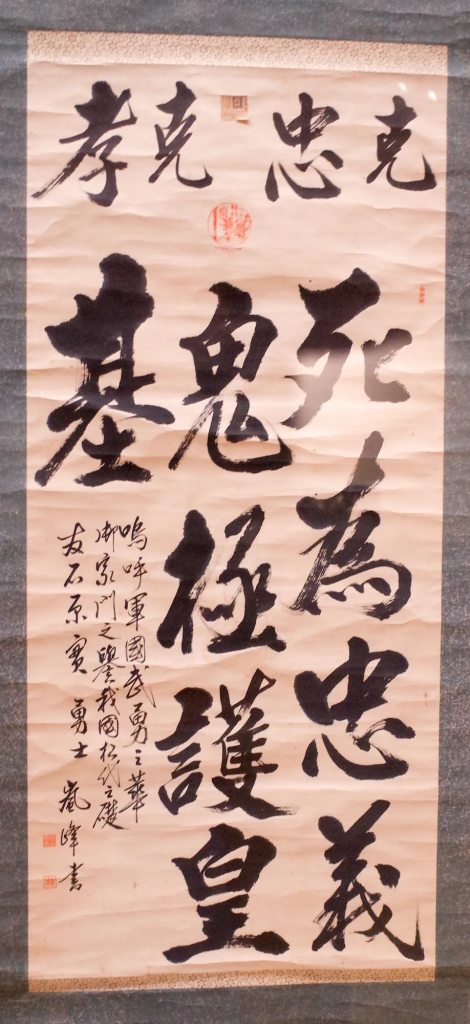 克忠
克孝
死為忠義
鬼極護皇
基
嗚呼軍國武勇之華
御家門之譽我國松代之礎
友石原實 勇士 嵐峰書